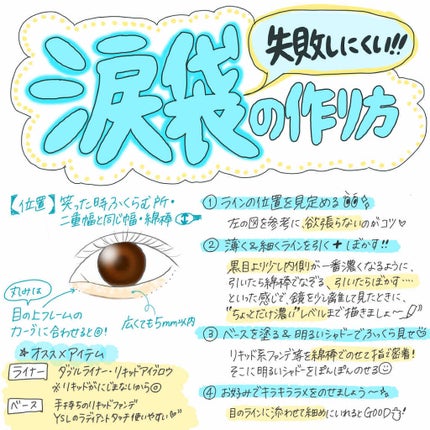 失敗しにくい!!
涙袋の作り方
【位置】笑った時ふくらむ所・
二重幅と同じ幅・綿棒
丸みは
目の上フレームの
カーブに合わせると◎!
広くても5mm以内
*オススメアイテム
ライナー
ダブルライナー・リキッドアイブロウ
※リキッドがにじまないから◎
ベース
手持ちのリキッドファンデ
YSLのラディアントタッチ使いやすい
① ラインの位置を見定める
左の図を参考に、欲張らないのがコツ♡
② 薄く&細くラインを引く+ぼかす!!
黒目より少し内側が一番濃くなるように、
引いたら綿棒でなぞる、引いたらぼかす…
といった感じで、鏡を少し離して見たときに、
"ちょとだけ濃い"レベルまで描きましょ〜!
③ ベースを塗る&明るいシャドーでふっくら見せ
リキッド系ファンデ等を綿棒でのせて指で密着!
そこに明るいシャドーをぽんぽんのせる
④ お好みでキラキララメをのせましょう〜
目のラインに添わせて細めにいれるとGOOD!